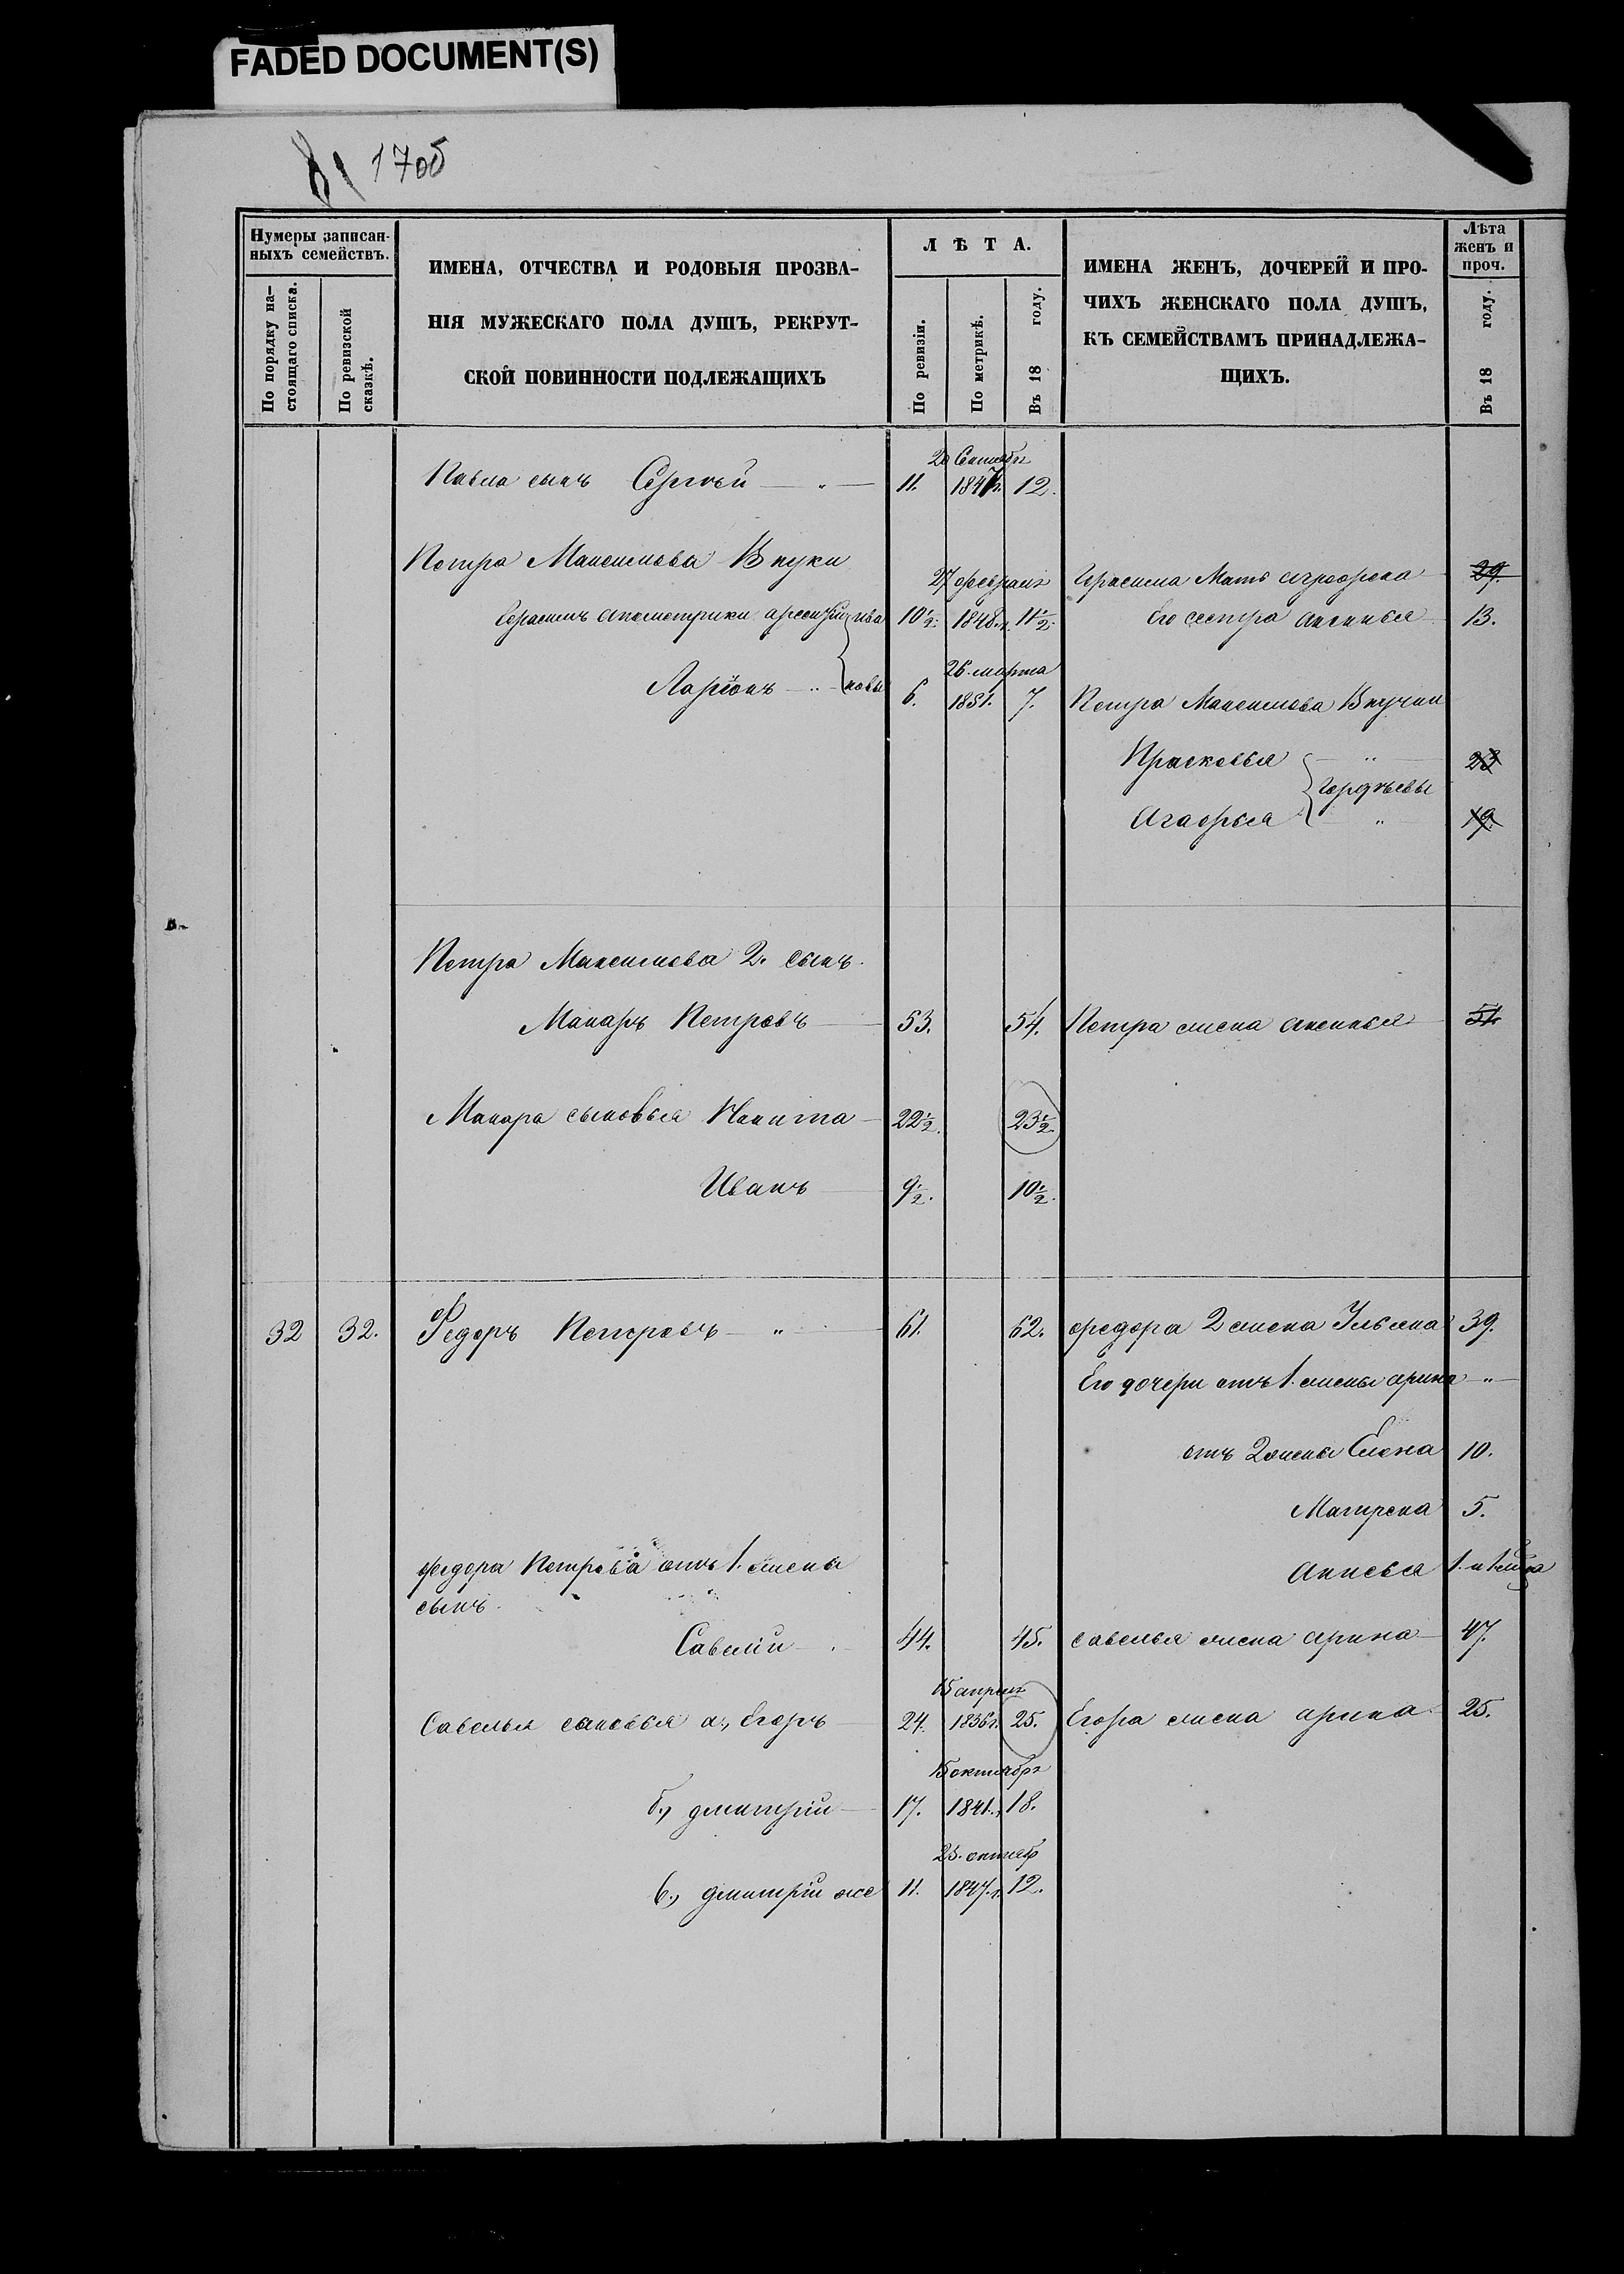 FADED DOCUMENT(S)
81 17об
Нумеры записан-
ныхъ семействъ.
По порядку на-
стоящаго списка.
По ревизской
сказкѣ.
ИМЕНА, ОТЧЕСТВА И РОДОВЫЯ ПРОЗВА-
НІЯ МУЖЕСКАГО ПОЛА ДУШЪ, РЕКРУТ-
СКОЙ ПОВИННОСТИ ПОДЛЕЖАЩИХЪ
ЛѢТА.
По ревизіи.
По метрикѣ.
Въ 18 году.
ИМЕНА ЖЕНЪ, ДОЧЕРЕЙ И ПРО-
ЧИХЪ ЖЕНСКАГО ПОЛА ДУШЪ,
КЪ СЕМЕЙСТВАМЪ ПРИНАДЛЕЖА-
ЩИХЪ.
Лѣта
женъ и
проч.
Въ 18 году.
20 Сентябр
Павла сынъ Сергѣй — " — 11. 1847г. 12.
Петра Максимова Внуки
27 февраля Герасима Мать 29.
Герасимъ апометрики 10 1/2. 1848.г. 11 1/2. Его сестра аксинья 13.
26. марта
Ларіонъ — " — новы 6. 1851. 7. Петра Максимова Внучки
Прасковья — " — 23
Гордѣевы
Агафья — " — 19.
Петра Максимова 2. сынъ.
Макаръ Петровъ — 53. 54. Петра жена аксинья 51.
Макара сыновья Никита — 22 1/2. 23 1/2.
Иванъ — 9 1/2. 10 1/2.
32 32. Федоръ Петровъ — " — 61. 62. федора 2 жена Ульяна 39.
Его дочери отъ 1. жены арина — " —
отъ 2 жены Елена 10.
Матрена 5.
федора Петрова отъ 1. жены Анисья 1.
сынъ.
Савелій — 44. 45. савелья жена арина — 47.
15 апреля
Савелья сыновья а., Егоръ — 24. 1836г. 25. Егора жена арина — 25.
15 октября
б., дмитрій — 17. 1841.г. 18.
25. октябр
в., дмитрій же 11. 1847.г. 12.